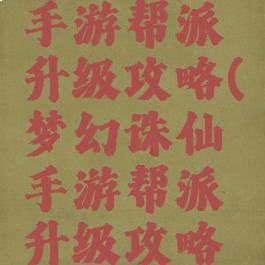 手游帮派
升级攻略(
梦幻诛仙
手游帮派
升级攻略